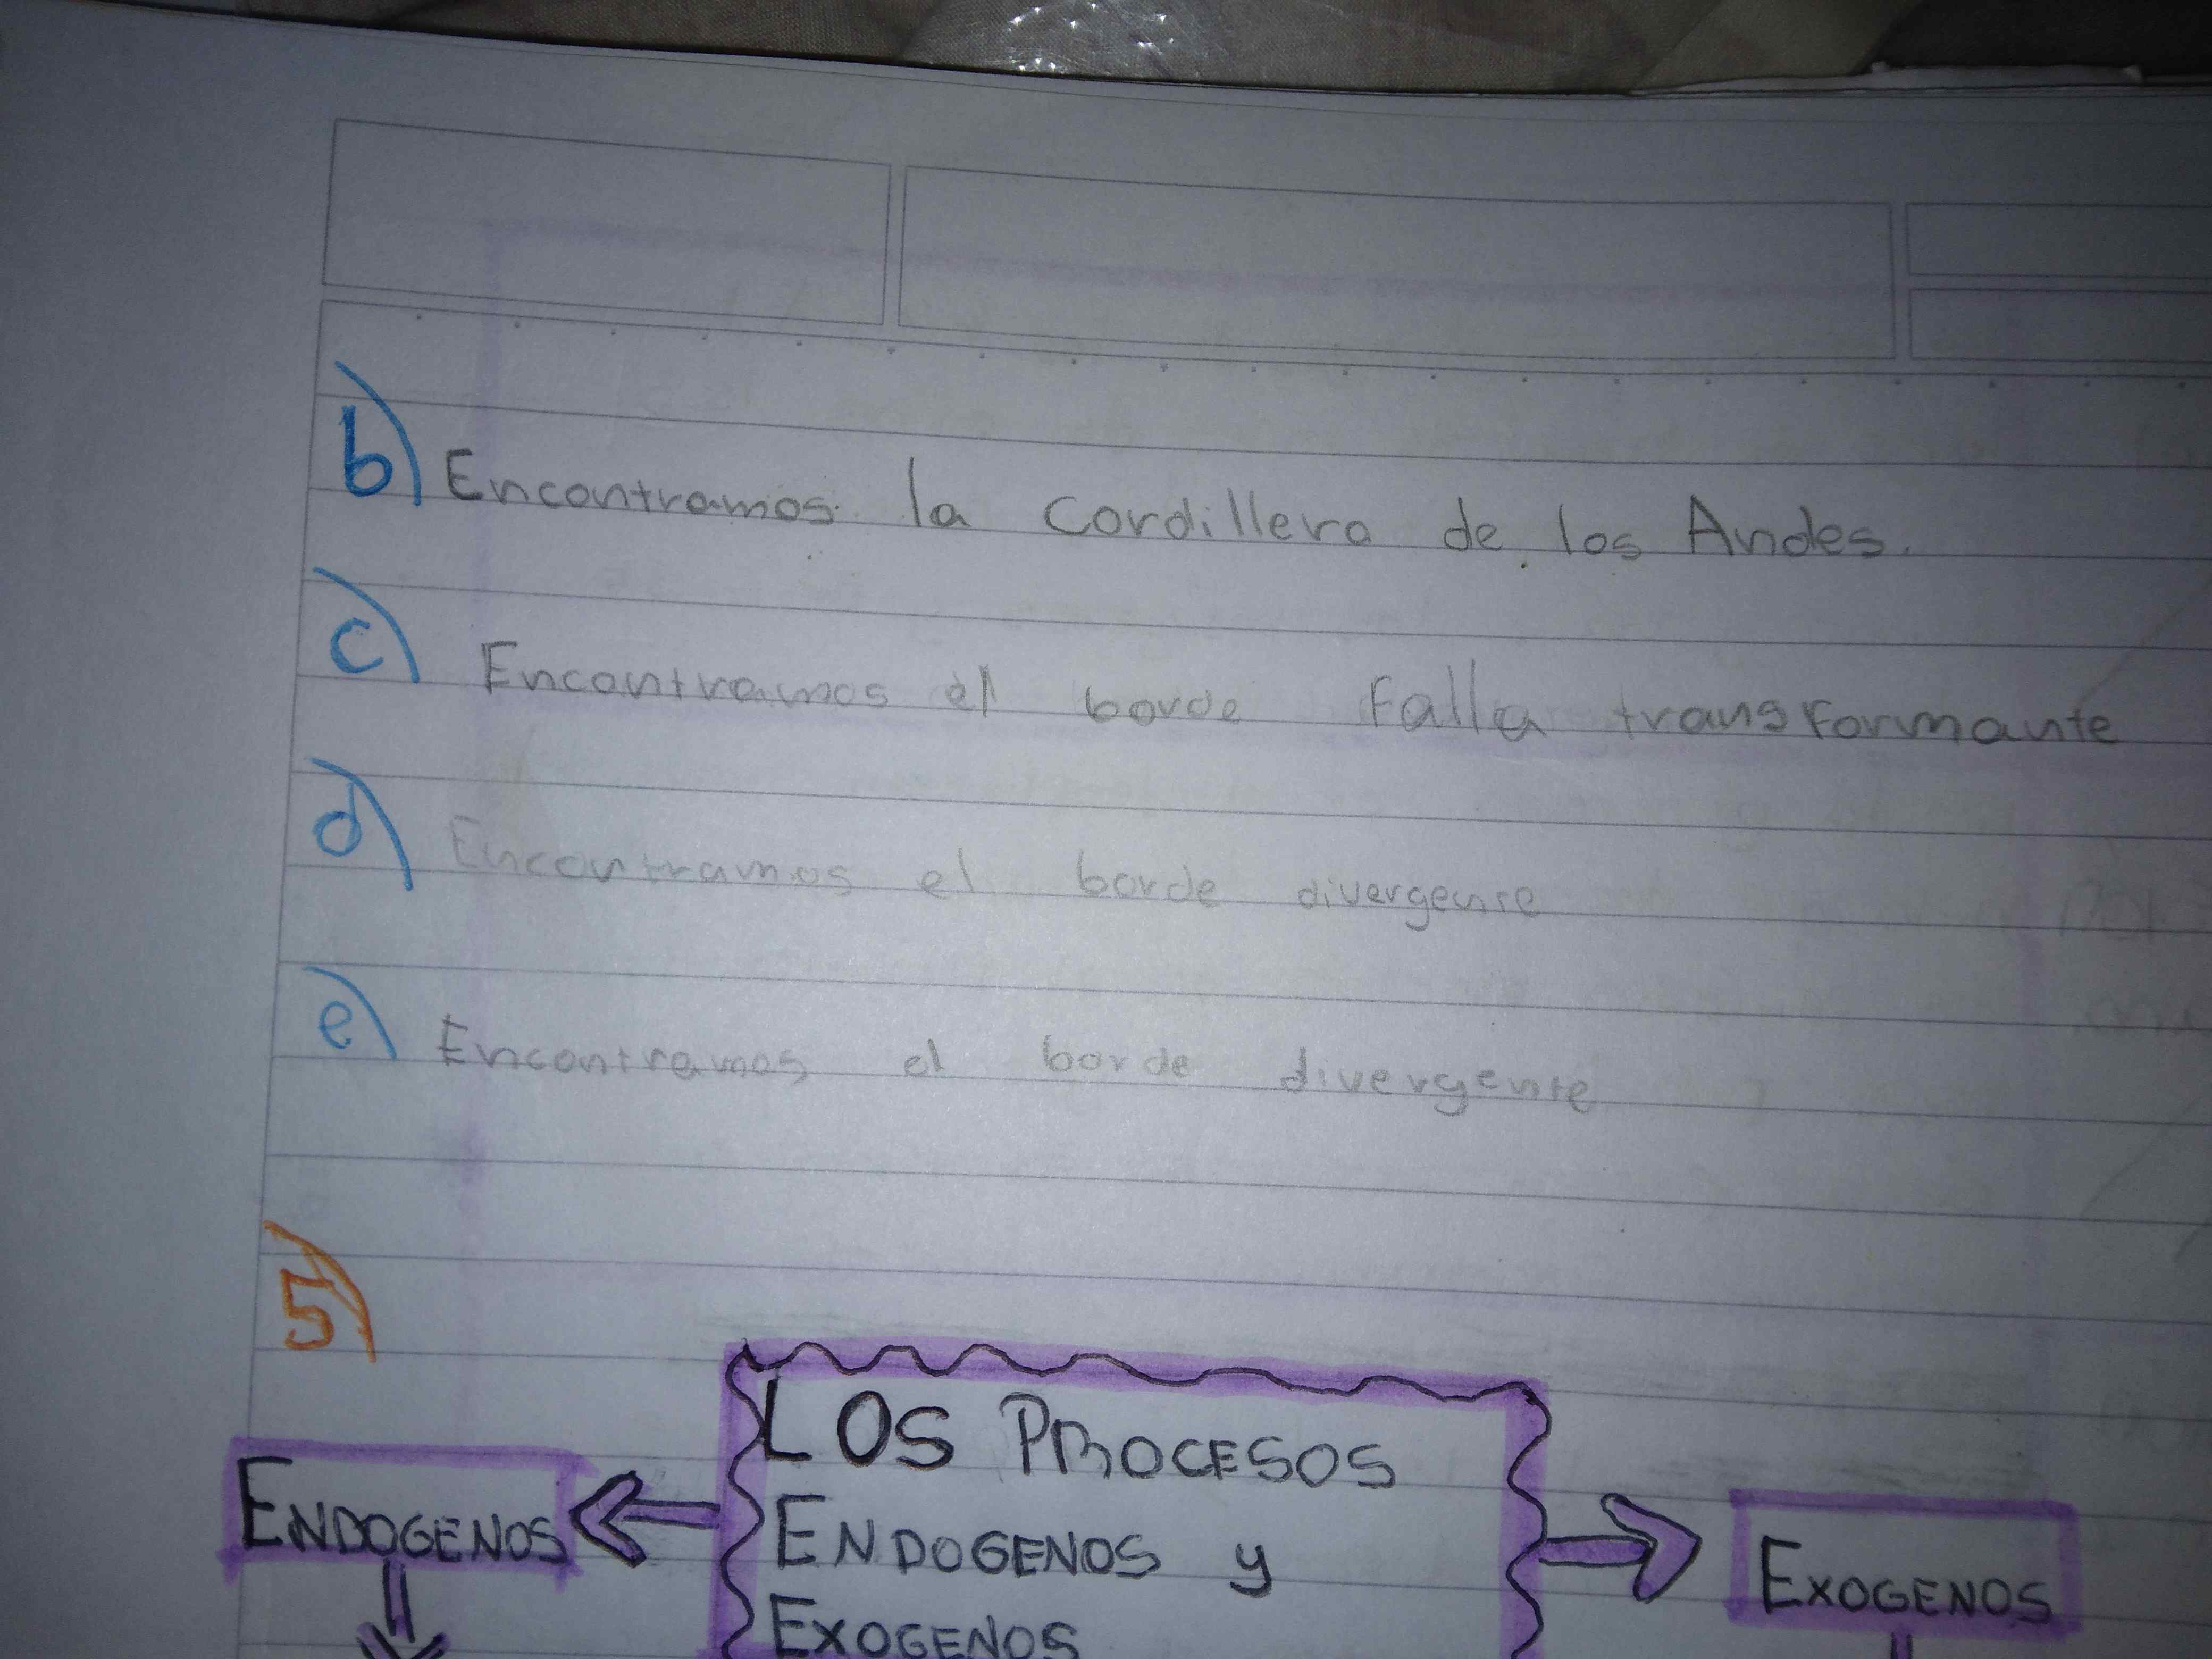 b) Encontramos la Cordillera de los Andes.
c) Encontramos el borde Falla transFormante
d) Encontramos el borde divergente
e) Encontramos el borde divergente
5)
LOS PROCESOS
ENDOGENOS y
EXOGENOS
ENDOGENOS
EXOGENOS